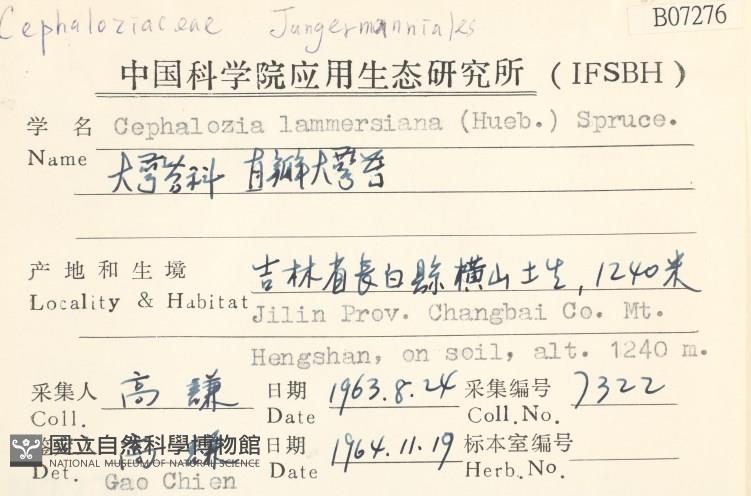 Cephaloziaceae Jungermanniales
B07276
中国科学院应用生态研究所 (IFSBH)
学 名 Cephalozia lammersiana (Hueb.) Spruce.
Name
大萼苔科 大萼苔
产地和生境 吉林省長白縣橫山土生, 1240米
Locality & Habitat Jilin Prov. Changbai Co. Mt.
Hengshan, on soil, alt. 1240 m.
采集人 高 謙 日期 1963.8.24 采集编号 7322
Coll. Date Coll.No.
國立自然科學博物館 日期 1964.11.19 标本室编号
NATIONAL MUSEUM OF NATURAL SCIENCE
Det. Date Herb.No.
Gao Chien